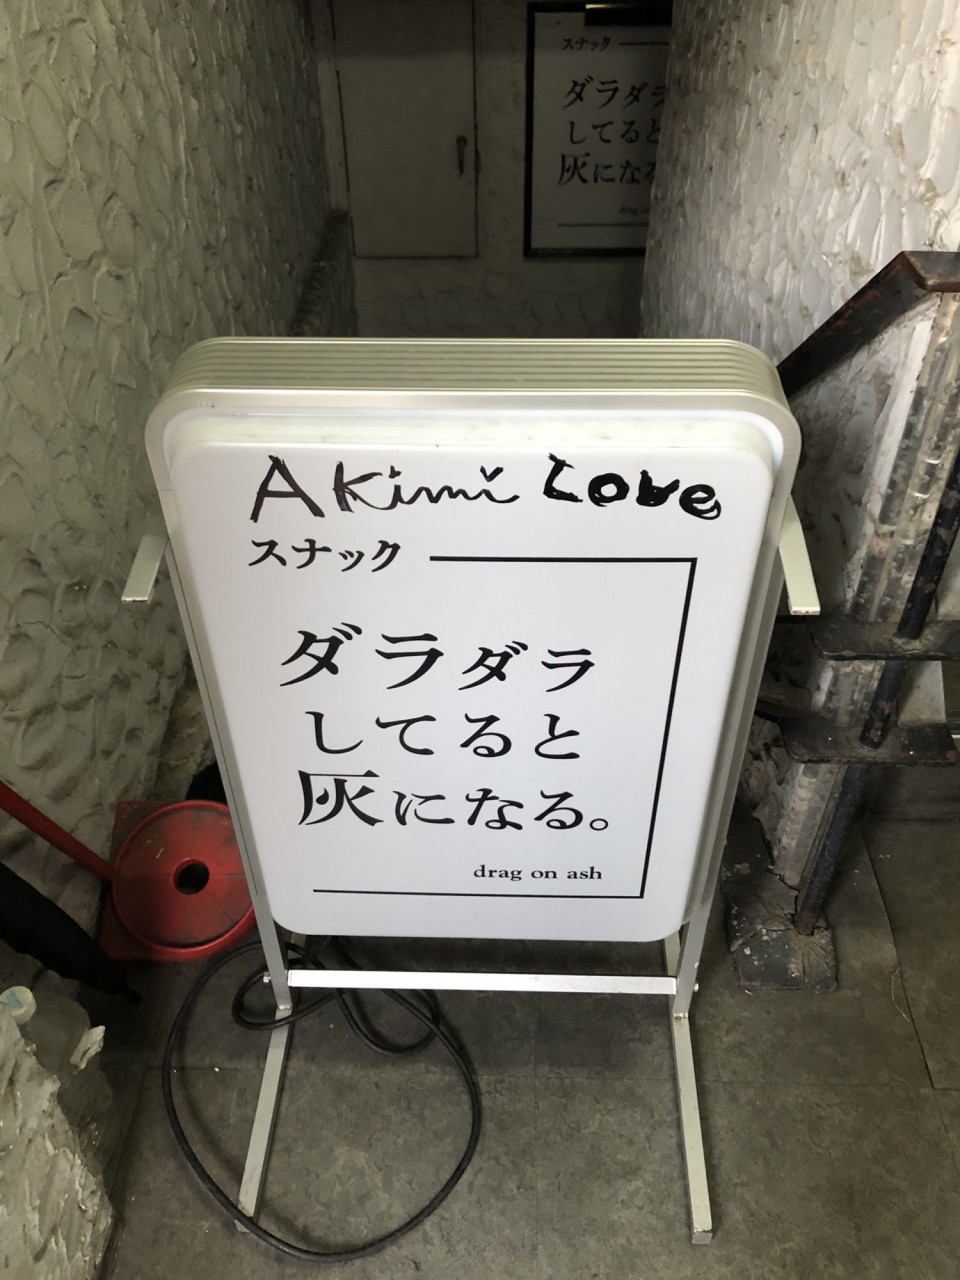 スナック
ダラダラ
してると
灰になる
Akimi Love
スナック
ダラダラ
してると
灰になる。
drag on ash